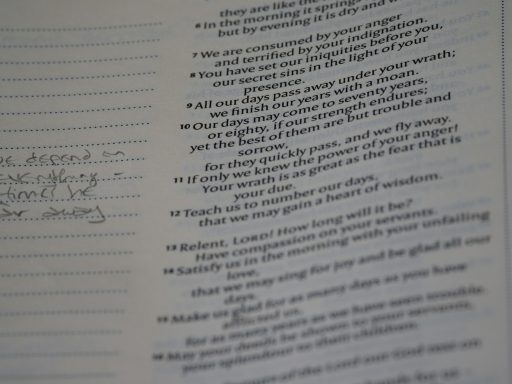 they are like the
6 In the morning it springs
but by evening it is dry and
7 We are consumed by your anger
and terrified by your indignation.
8 You have set our iniquities before you,
our secret sins in the light of your
presence.
9 All our days pass away under your wrath;
we finish our years with a moan.
10 Our days may come to seventy years,
or eighty, if our strength endures;
yet the best of them are but trouble and
sorrow,
for they quickly pass, and we fly away.
11 If only we knew the power of your anger!
Your wrath is as great as the fear that is
your due.
12 Teach us to number our days,
that we may gain a heart of wisdom.
13 Relent, LORD! How long will it be?
Have compassion on your servants.
14 Satisfy us in the morning with your unfailing
love,
that we may sing for joy and be glad all our
days.
15 Make us glad for as many days as you have
afflicted us,
for as many years as we have seen trouble.
16 May your deeds be shown to your servants,
your splendor to their children.
depend on
everything -
away